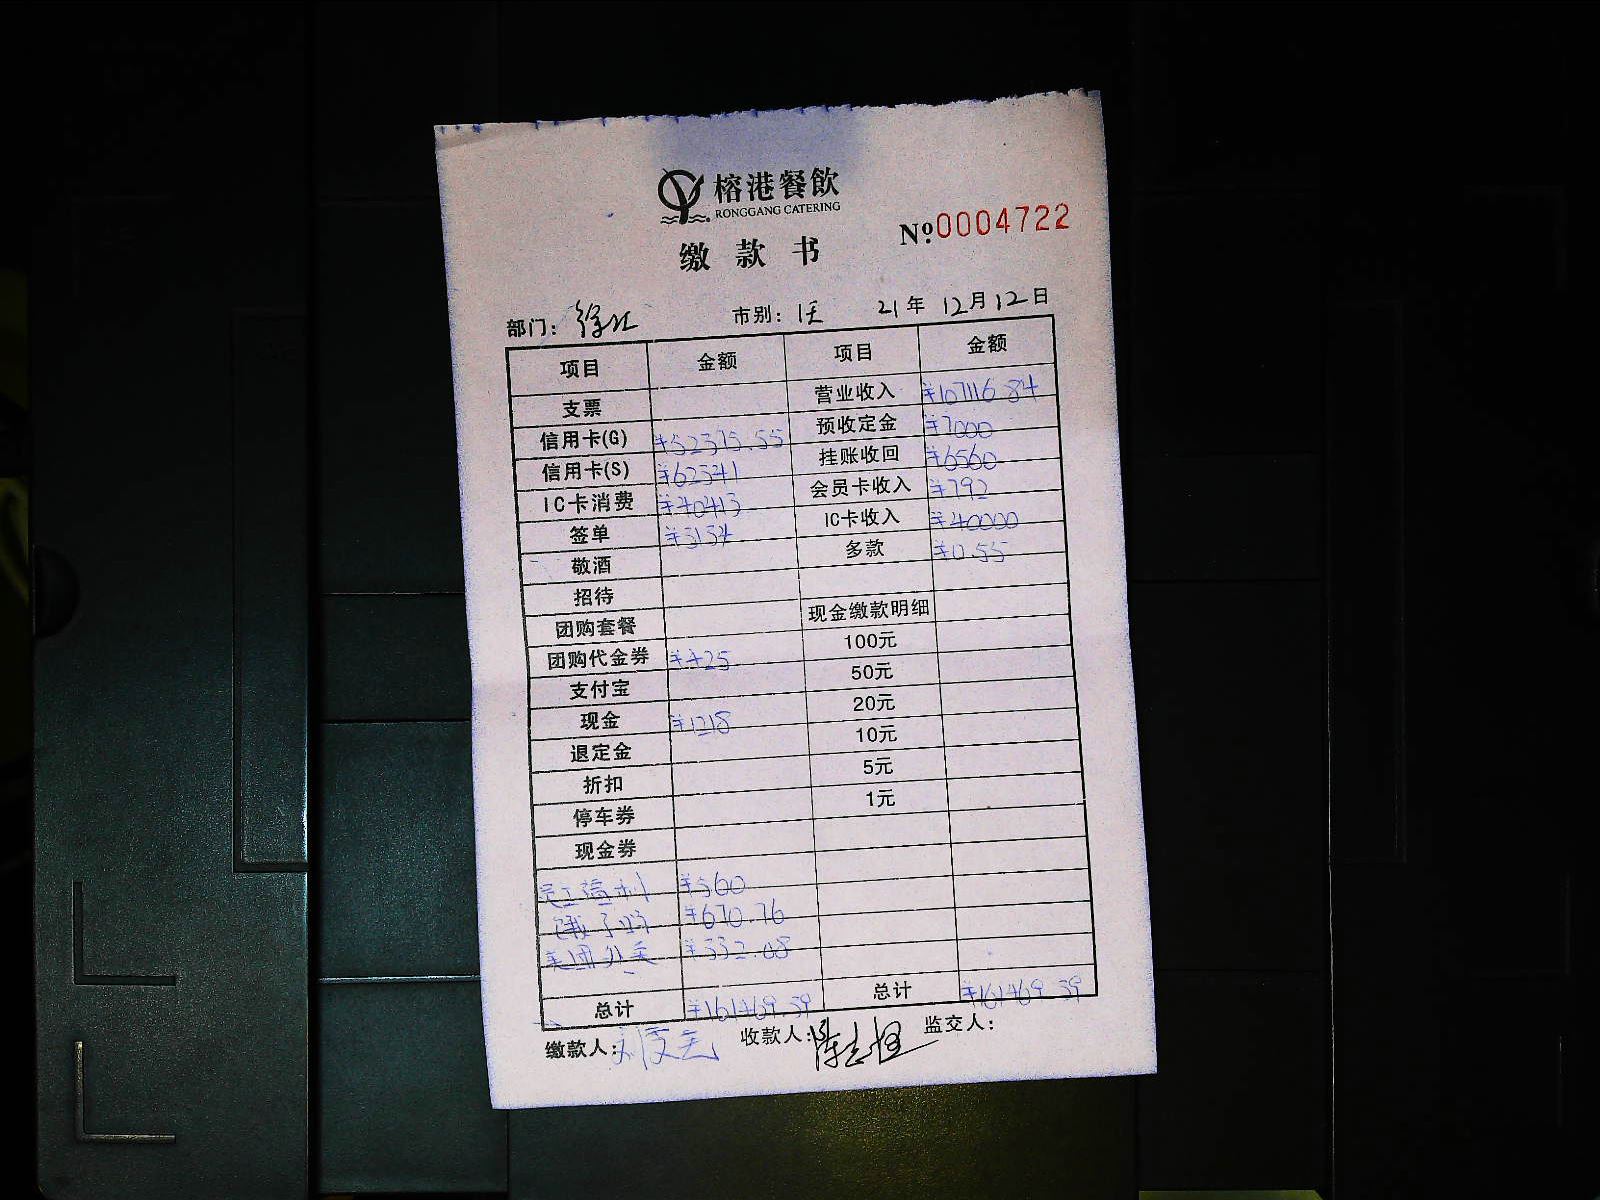 榕港餐飲
RONGGANG CATERING
缴款书
№0004722
部门：徐汇 市别： 21年 12月12日
项目 金额 项目 金额
支票 营业收入 ¥107116.84
信用卡(G) ¥52375.55 预收定金 ¥7000
信用卡(S) ¥62341 挂账收回 ¥6560
IC卡消费 ¥40413 会员卡收入 ¥792
签单 ¥3134 IC卡收入 ¥40000
敬酒 多款 ¥0.55
招待
团购套餐 现金缴款明细
团购代金券 ¥425 100元
支付宝 50元
现金 ¥1218 20元
退定金 10元
折扣 5元
停车券 1元
现金券
员工福利 ¥560
饿了吗 ¥670.76
美团外卖 ¥332.08
总计 ¥161469.39 总计 ¥161469.39
缴款人： 收款人： 监交人：